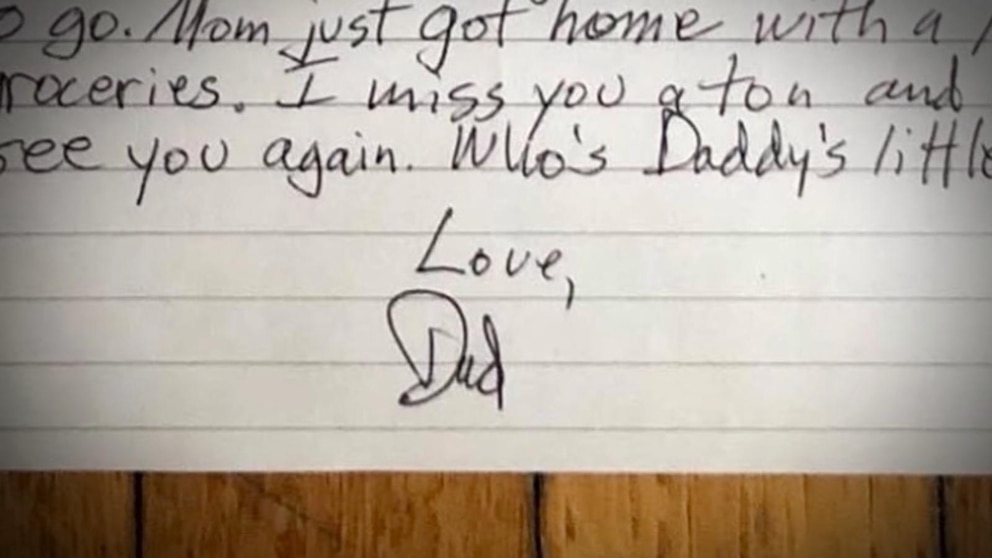 go. Mom just got home with a
roceries. I miss you a ton and
see you again. Who's Daddy's little
Love,
Dad